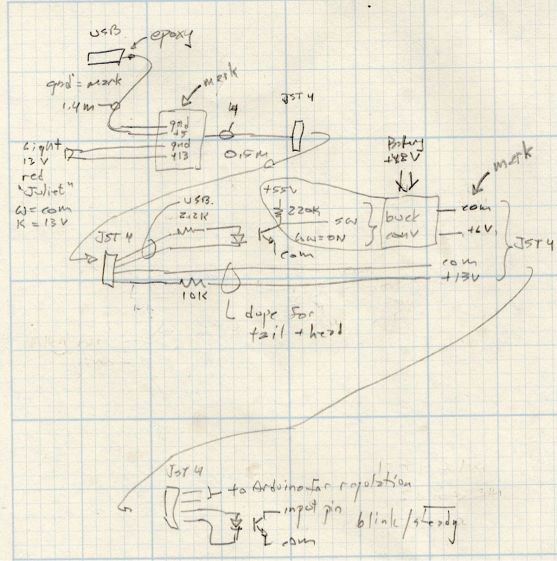 USB
epoxy
gnd = mark
mark
1.4m
4
JST 4
gnd
+5
gnd
+13
Light
12V
red
"Juliet"
W = com
K = 13V
0.5m
+48V
mark
+55V
USB.
2.2K
220K
SW
buck
conv
com
+6V
JST 4
JST 4
com
com
+13V
10K
dope for
tail + head
JST 4
to Arduino for regulation
input pin
blink / steady
com